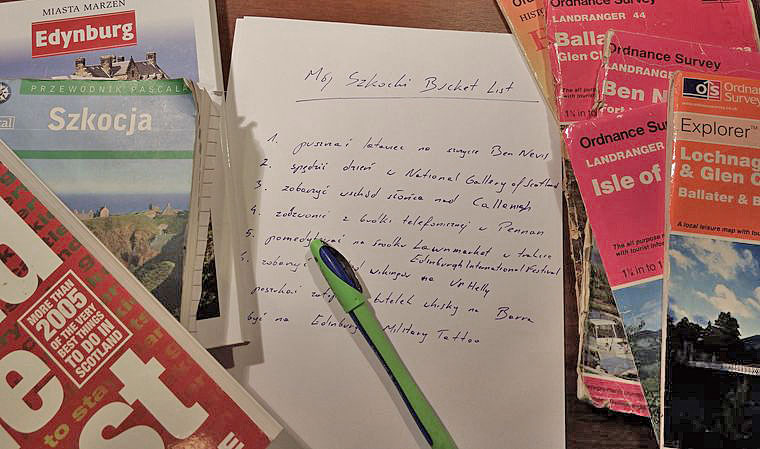 MIASTA MARZEŃ
Edynburg
PRZEWODNIK PASCALA
Szkocja
MORE THAN
2005
OF THE VERY
BEST THINGS
TO DO IN
SCOTLAND
to sta
Mój Szkocki Bucket List
1. puszczać latawiec na szczycie Ben Nevis
2. spędzić dzień w National Gallery of Scotland
3. zobaczyć wschód słońca nad Callanish
4. zadzwonić z budki telefonicznej w Pennan
5. pomedytować na środku Lawnmarket w trakcie
Edinburgh International Festival
na Up Helly
poszukać butelek whisky na Barra
być na Edinburgh Military Tattoo
Ordnance Survey
LANDRANGER 44
Balla
Glen C
Ordnance Survey
LANDRANGER
Ben N
Fort
1¼ in to
Ordnance Su
LANDRANGER
Isle of
The all purpose
tourist infor
1¼ in to 1
OS
Ordnan
Survey
Explorer™
Lochnag
& Glen C
Ballater & B
A local leisure map with tou